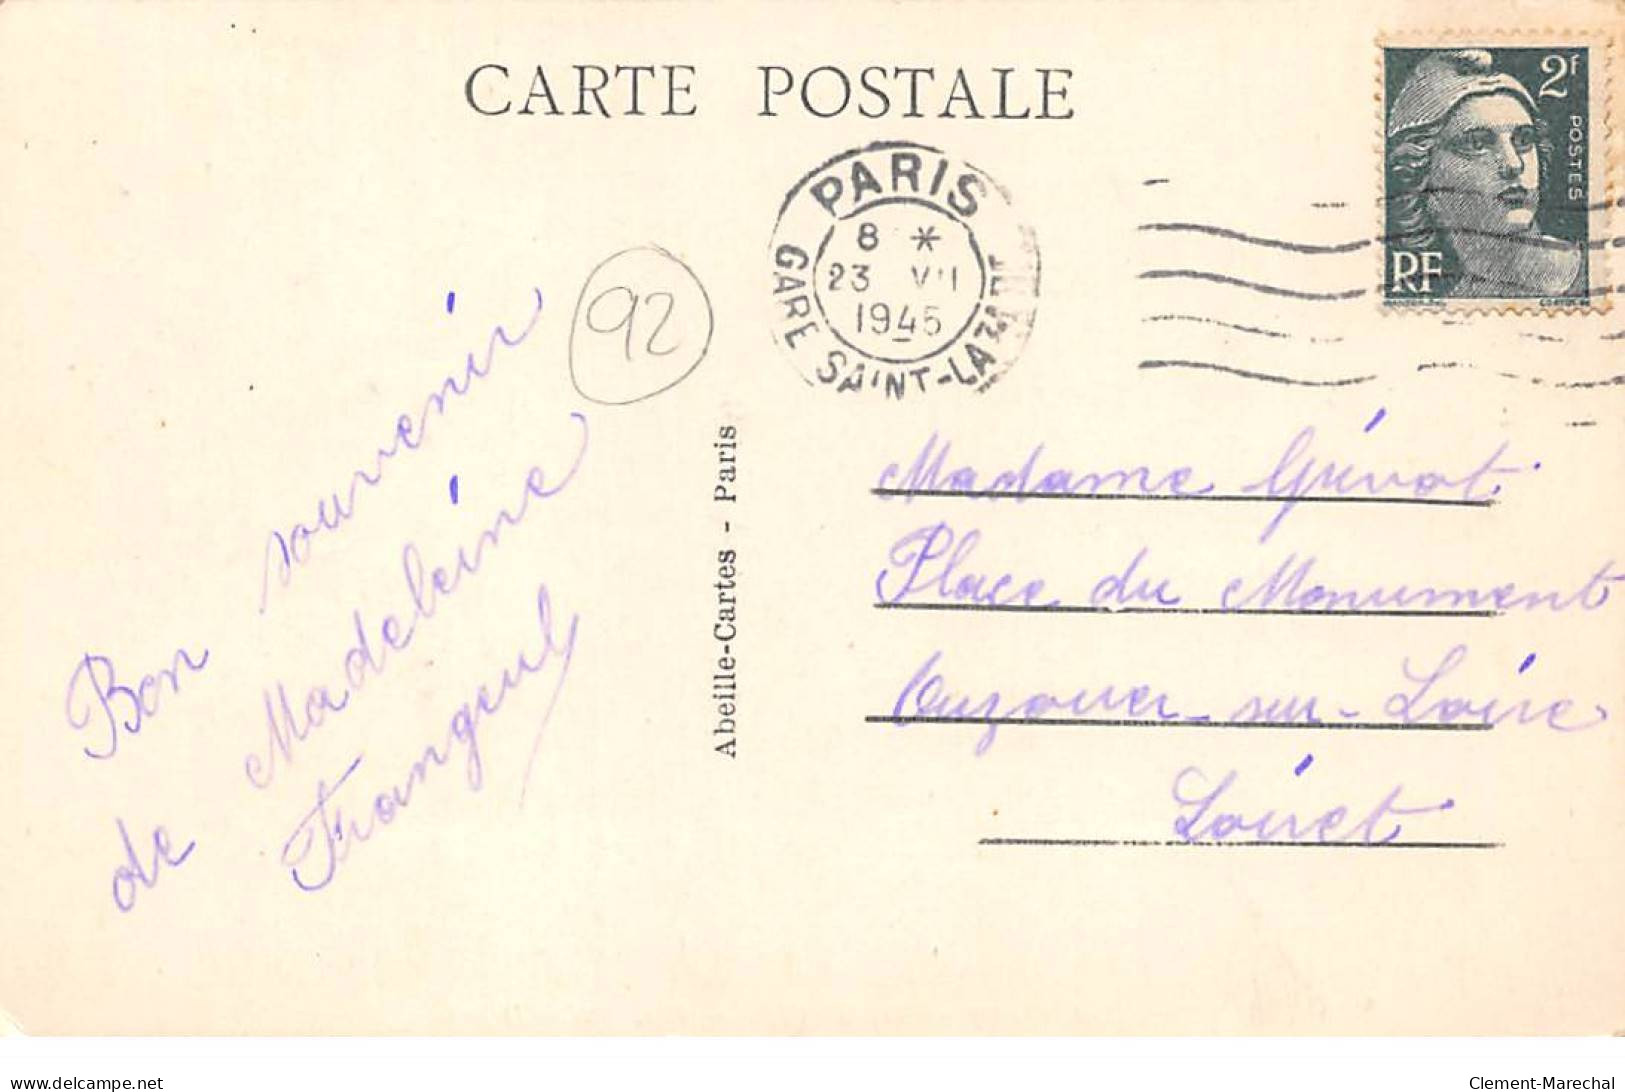 CARTE POSTALE
2f
POSTES
RF
PARIS
8 *
23 VII
1945
GARE SAINT-LAZARE
92
Bon souvenir
de Madeleine
Frangeul
Abeille-Cartes - Paris
Madame Givot
Place du Monument
Ouzouer-sur-Loire
Loiret
delcampe.net
Clement-Marechal